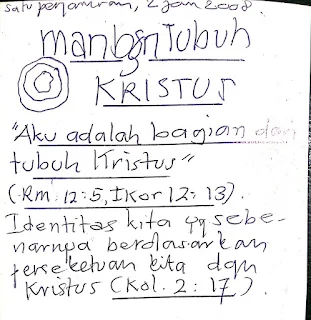 satu perjamuan, 2 Jan 2008
Manbgn Tubuh
KRISTUS
"Aku adalah bagian dari
tubuh Kristus"
(Rm. 12:5, I Kor 12:13).
Identitas kita yg sebe-
narnya berdasarkan
persekutuan kita dgn
Kristus (Kol. 2:17).